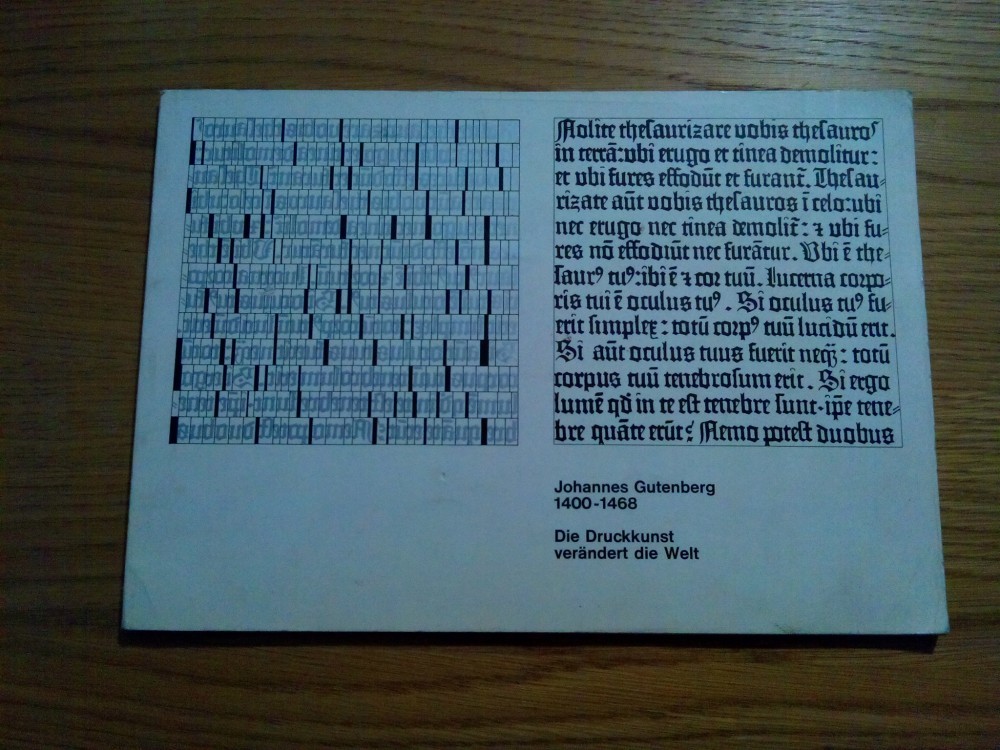 Nolite theſaurizare vobis theſauroſ
in terrā:vbi erugo et tinea demolitur:
et vbi fures effodiūt et furant̄. Theſau⸗
rizate aūt vobis theſauros ī celo:ubi
nec erugo nec tinea demolit̄: ⁊ vbi fu⸗
res nō effodiūt nec furātur. Vbi ē the⸗
ſaurꝰ tuꝰ:ibi ē ⁊ cor tuū. Lucerna corpo⸗
ris tui ē oculus tuꝰ. Si oculus tuꝰ fu⸗
erit ſimplex: totū corpꝰ tuū lucidū erit.
Si aūt oculus tuus fuerit neq̄ȝ: totū
corpus tuū tenebroſum erit. Si ergo
lumē qd̄ in te eſt tenebre ſunt·ip̄e tene⸗
bre quāte erūt? Nemo poteſt duobus
Johannes Gutenberg
1400-1468
Die Druckkunst
verändert die Welt